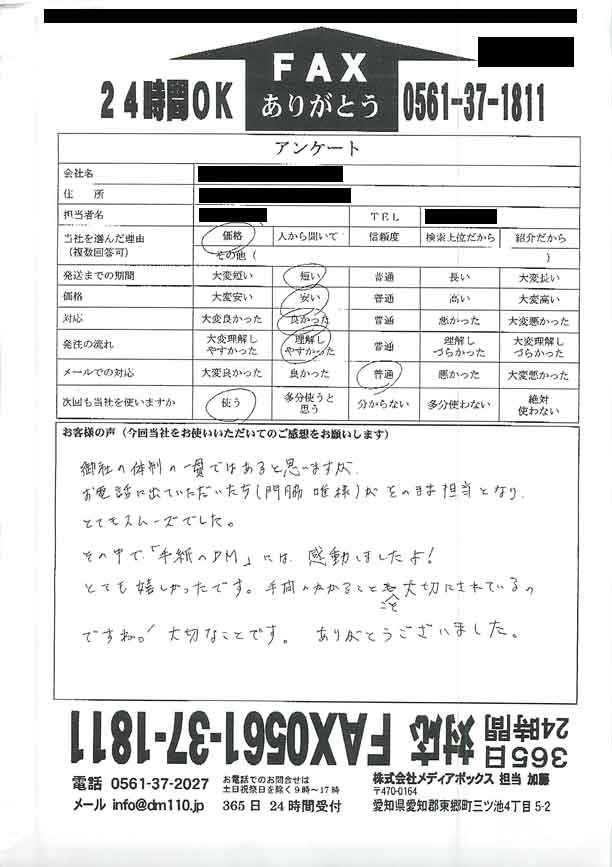 FAX
24時間OK
ありがとう
0561-37-1811
アンケート
会社名
住　所
担当者名　TEL
当社を選んだ理由（複数回答可）　価格　人から聞いて　信頼度　検索上位だから　紹介だから
その他（　）
発送までの期間　大変短い　短い　普通　長い　大変長い
価格　大変安い　安い　普通　高い　大変高い
対応　大変良かった　良かった　普通　悪かった　大変悪かった
発注の流れ　大変理解しやすかった　理解しやすかった　普通　理解しづらかった　大変理解しづらかった
メールでの対応　大変良かった　良かった　普通　悪かった　大変悪かった
次回も当社を使いますか　使う　多分使うと思う　分からない　多分使わない　絶対使わない
お客様の声（今回当社をお使いいただいてのご感想をお願いします）
御社の体制の一貫ではあると思いますが、
お電話に出ていただいた方（門脇唯様）がそのまま担当となり、
とてもスムーズでした。
その中で「手紙のDM」には、感動しましたよ！
とても嬉しかったです。手間のかかること こそ 大切にされているの
ですね。！大切なことです。ありがとうございました。
365日24時間 対応 FAX0561-37-1811
電話 0561-37-2027
メール info@dm110.jp
お電話でのお問合せは
土日祝祭日を除く9時～17時
365日24時間受付
株式会社メディアボックス 担当 加藤
〒470-0164
愛知県愛知郡東郷町三ツ池4丁目5-2